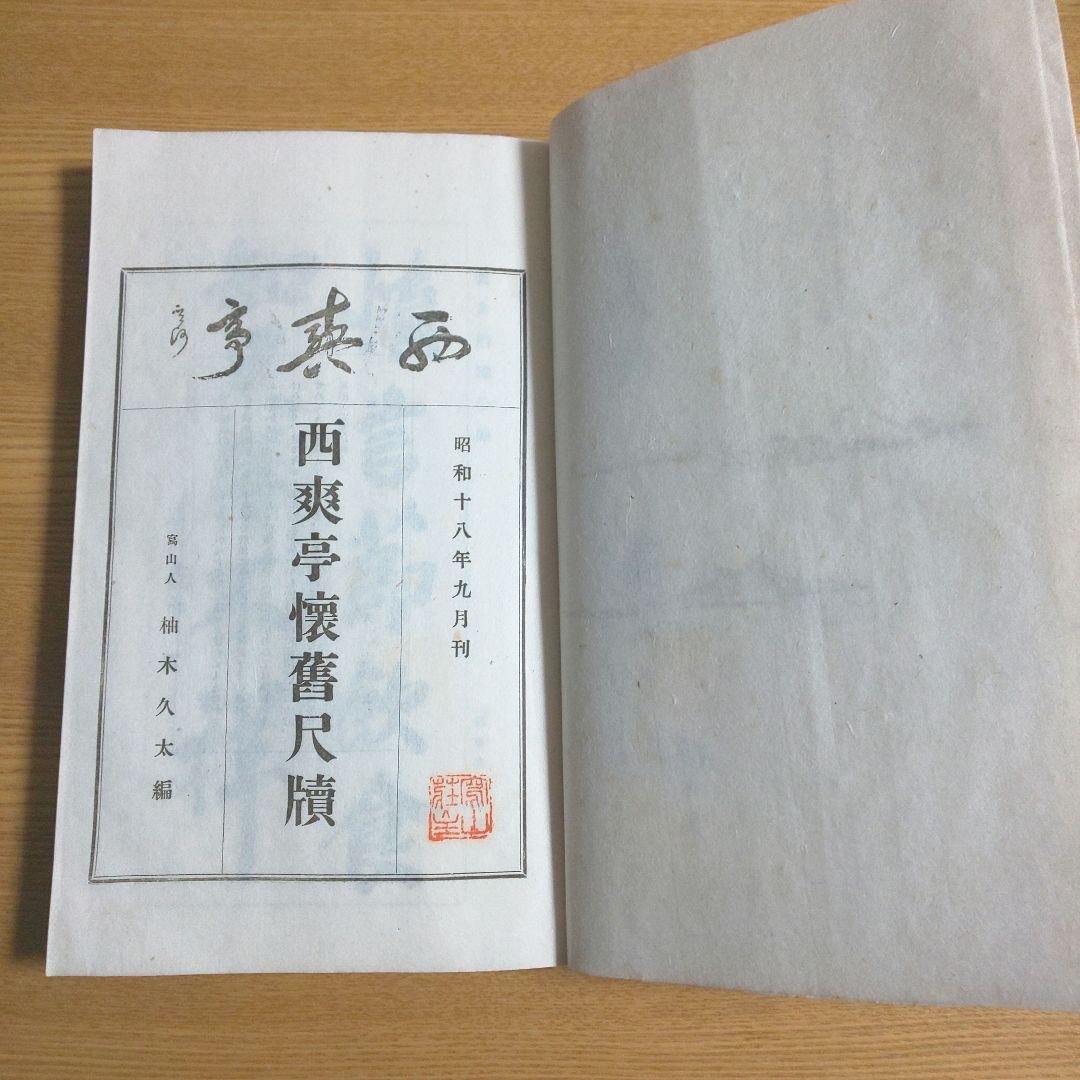 西爽亭
昭和十八年九月刊
西爽亭懷舊尺牘
寫山人 柚木久太編